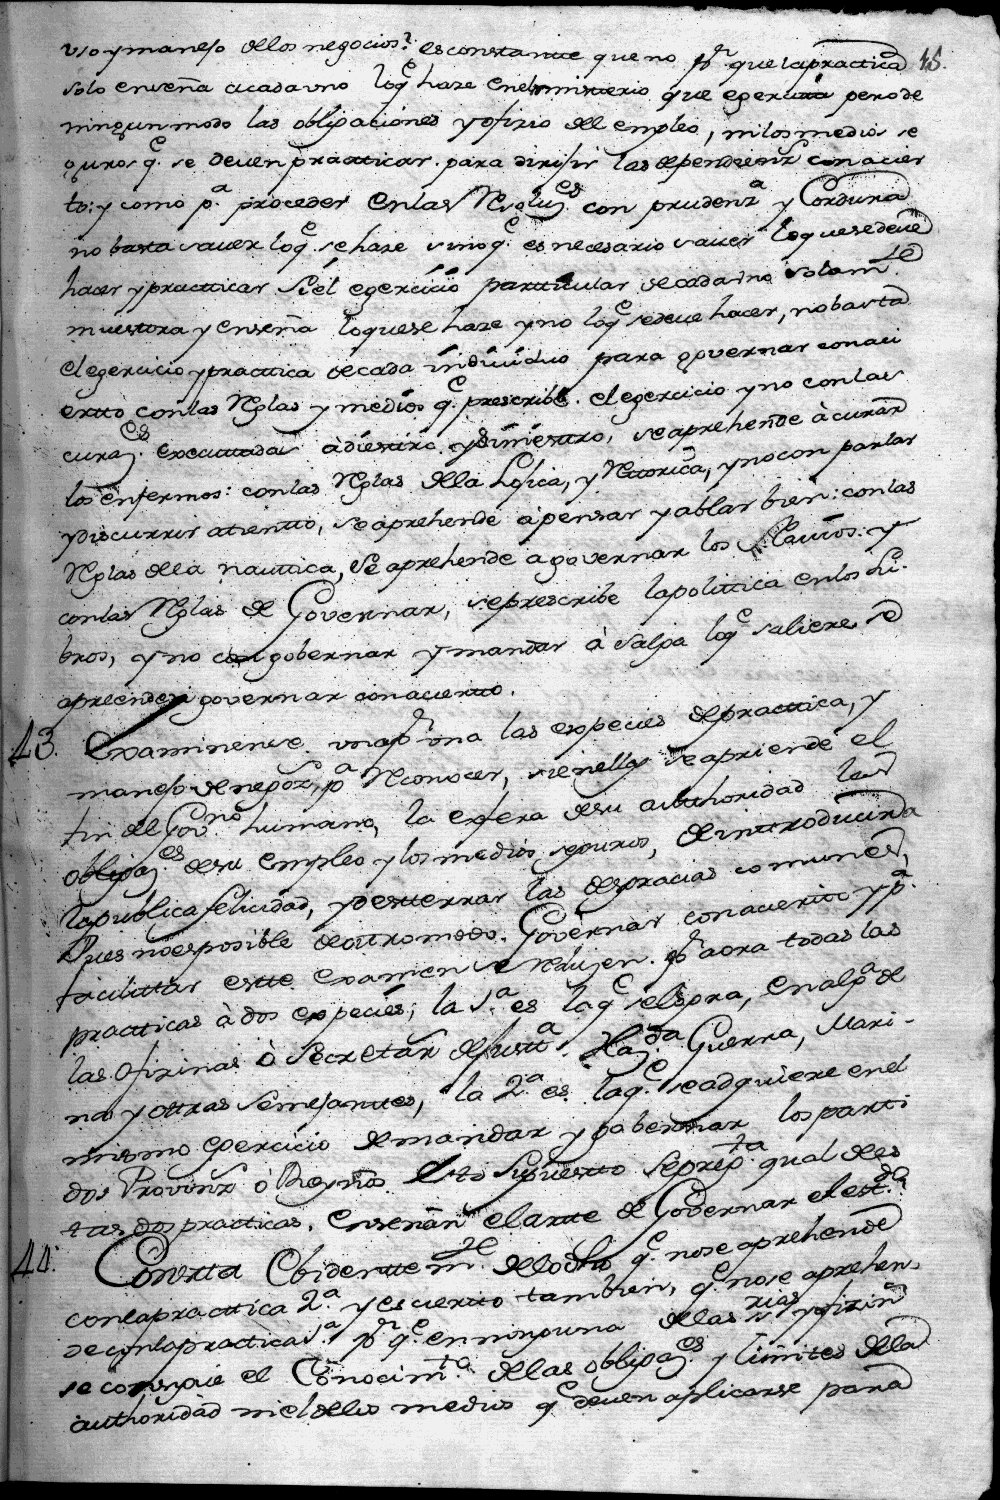 uso y manejo de los negocios? es constante que no pr. que la practica 45.
solo enseña a cada uno loqe haze en el ministerio que egercita pero de
ningun modo las obligaciones y ofizio del empleo, ni los medios se
guros qe. se deven practicar para dirijir las dependienzs con acier
to: y como pa. proceder en las Rsoluzes. con prudenza y Cordura
no basta saver loqe. se haze sino qe. es necesario saver lo que se deve
hacer y practicar Si el egercicio particular de cada uno solamte.
muestra y enseña lo que se haze y no loqe se deve hacer, no basta
el egercicio y practica de cada individuo para governar con aci
ertto con las Rglas y medios qe. prescribe. el egercicio y no con las
curazes. executtadas à diestro. y Siniestro, se aprehende à curar
los enfermos: con las Rglas de la Lojica, y Rettorica, y no con parlar
y discurrir a tientto, se aprehende à pensar y ablar bien: con las
Rglas de la nauttica, Se aprehende a governar los Navios: y
con las Rglas de Governar, se prescribe la polittica en los Li-
bros, y no con gobernar y mandar à Salga loqe saliere se
apreende à governar con aciertto.
43. Examinense una pr. una las especies de practtica, y
manejo de negozs, pa Rconocer, si en ellas se apriende el
fin del Govno. humano, la esfera de su authoridad las
obligazes. de su empleo y los medios seguros, de introducir
la publica felicidad, y desterrar las desgracias comunes,
Pues no es posible de otro modo. Governar con acierto y pa.
facilitar este examen se reduzen. pr aora todas las
practticas à dos especies; la 1.a es la qe se logra, en alga de
las ofizinas ò Secretars de Justta. Hazda. Guerra, Mari-
na y ottras semejanttes, la 2.a es. la qe. se adquiere en el
mismo egercicio de mandar y gobernar los parti
dos Provinzs ò Reynos. Esto Supuestto se pregta. qual de es
tas dos practicas. Enseñan el artte de Governar el estdo.
44. Consta Evidenttemte. de lo dho qe. no se aprehende
con la practtica 2.a y es ciertto tambien, qe. no se aprehen-
de con la practica 1.a pr. qe. en ninguna de las rias y ofizins
se consigue el Conocimto. de las obligazes. y limites de la
authoridad ni el de los medios qe deven aplicarse para